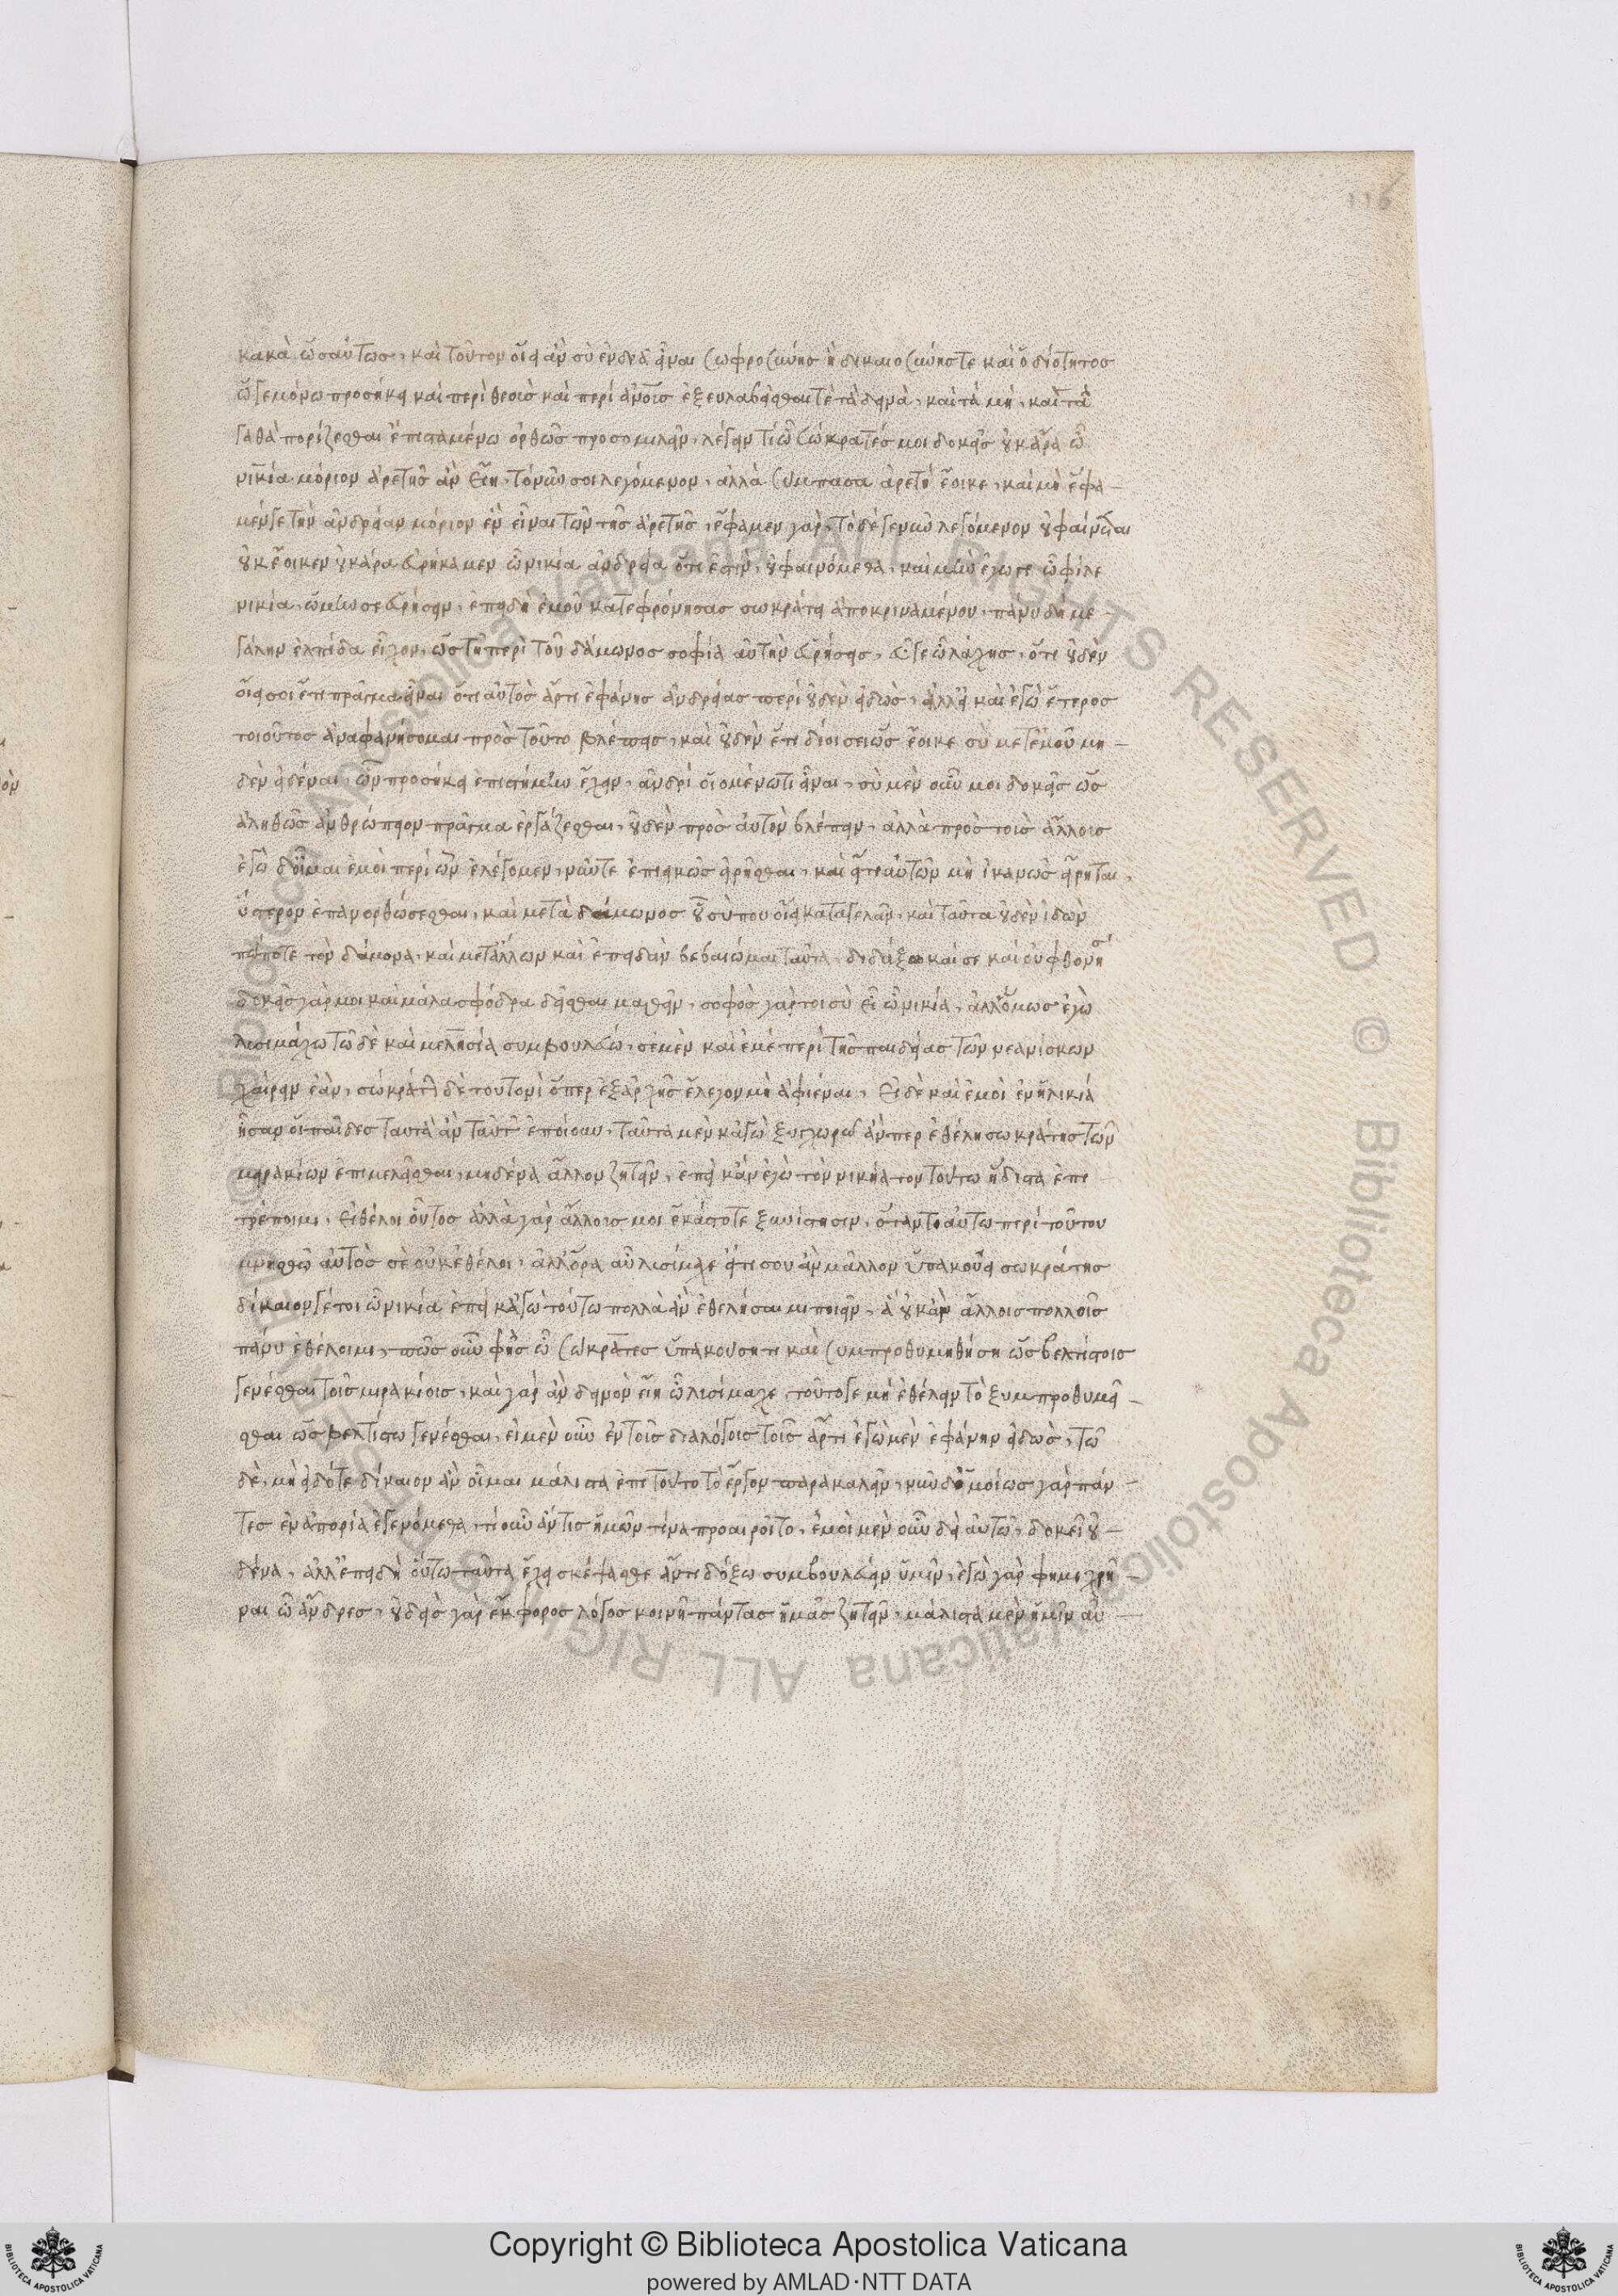 116
κακὰ ὡσαύτως, καὶ τοῦτον οἴει ἂν σὺ ἐνδεᾶ εἶναι σωφροσύνης ἢ δικαιοσύνης τε καὶ ὁσιότητος
ᾧ γε μόνω προσήκει καὶ περὶ θεοὺς καὶ περὶ ἀνους ἐξευλαβεῖσθαί τε τὰ δεινὰ, καὶ τὰ μὴ, καὶ τἀ
γαθὰ πορίζεσθαι ἐπισταμένω ὀρθῶς προσομιλεῖν, λέγειν τὶ ὦ σώκρατές μοι δοκεῖς οὐκ ἄρα ὦ
νικία μόριον ἀρετῆς ἂν εἴη, τὸ νῦν σοι λεγόμενον, ἀλλὰ σύμπασα ἀρετή ἔοικε, καὶ μὴ ἔφα
μέν γε τὴν ἀνδρείαν μόριον ἓν εἶναι τῶν τῆς ἀρετῆς, ἔφαμεν γάρ, τὸ δέ γε νῦν λεγόμενον οὐ φαίνεται
οὐκ ἔοικεν οὐκ ἄρα εὑρήκαμεν ὦ νικία ἀνδρεία ὅτι ἐστὶν, οὐ φαινόμεθα, καὶ μὴν ἔγωγε ὦ φίλε
νικία, ὤμην σε εὑρήσειν, ἐπειδὴ ἐμοῦ κατεφρόνησας σωκράτει ἀποκριναμένου, πάνυ δὴ με
γάλην ἐλπίδα εἶχον, ὡς τῆ περὶ τοῦ δάμωνος σοφία αὐτὴν εὑρήσεις, εὖ γε ὦ λάχης, ὅτι οὐδὲν
οἴει σοι ἔτι πρᾶγμα εἶναι ὅτι αὐτὸς ἄρτι ἐφάνης ἀνδρείας περὶ οὐδὲν εἰδὼς, ἀλλ' εἰ καὶ ἐγὼ ἕτερος
τοιοῦτος ἀναφανήσομαι πρὸς τοῦτο βλέπεις, καὶ οὐδὲν ἔτι διοίσει ὡς ἔοικε σὺ μετ' ἐμοῦ μη
δὲν εἰδέναι, ὧν προσήκει ἐπιστήμην ἔχειν, ἀνδρὶ οἰομένω τὶ εἶναι, σὺ μὲν οὖν μοι δοκεῖς ὡς
ἀληθῶς ἀνθρώπειον πρᾶγμα ἐργάζεσθαι, οὐδὲν πρὸς αὐτὸν βλέπειν, ἀλλὰ πρὸς τοὺς ἄλλους
ἐγὼ δ' οἶμαι ἐμοὶ περὶ ὧν ἐλέγομεν, νῦν τε ἐπιεικῶς εἰρῆσθαι, καὶ εἴ τι αὐτῶν μὴ ἱκανῶς εἴρηται,
ὕστερον ἐπανορθώσεσθαι, καὶ μετὰ δάμωνος οὗ σὺ που οἴει καταγελᾶν, καὶ ταῦτα οὐδὲν ἰδὼν
πώποτε τὸν δάμονα, καὶ μετ' ἄλλων καὶ ἐπειδὰν βεβαιώμαι ταῦτα διδάξω καὶ σε καὶ οὐ φθονή
δοκεῖς γάρ μοι καὶ μάλα σφόδρα δεῖσθαι μαθεῖν, σοφὸς γάρ τοι σὺ εἶ ὦ νικία, ἀλλ' ὅμως ἐγὼ
λυσιμάχω τῶδε καὶ μελησία συμβουλεύω, σὲ μὲν καὶ ἐμὲ περὶ τῆς παιδείας τῶν νεανίσκων
χαίρειν ἐᾶν, σωκράτη δὲ τουτονὶ ὅπερ ἐξ ἀρχῆς ἔλεγον μὴ ἀφιέναι, εἰ δὲ καὶ ἐμοὶ ἐν ἡλικία
ἦσαν οἱ παῖδες ταυτὰ ἂν ταῦτ' ἐποίουν, ταῦτα μὲν κἀγὼ ξυγχωρῶ ἄνπερ ἐθέλη σωκράτης τῶν
μειρακίων ἐπιμελεῖσθαι, μηδένα ἄλλον ζητεῖν, ἐπεὶ κἂν ἐγὼ τὸν νικήρατον τούτω ἥδιστα ἐπι
τρέποιμι, εἰ θέλοι οὗτος ἀλλὰ γὰρ ἄλλους μοι ἑκάστοτε ξυνίστησιν, ὅταν τι αὐτῶ περὶ τούτου
μνησθῶ αὐτὸς δὲ οὐκ ἐθέλει, ἀλλ' ὅρα αὖ λυσίμαχε εἴ τι σου ἂν μᾶλλον ὑπακούει σωκράτης
δίκαιόν γέ τοι ὦ νικία ἐπεὶ κἀγὼ τούτω πολλὰ ἂν ἐθελήσαιμι ποιεῖν, ἃ οὐκ ἂν ἄλλοις πολλοῖς
πάνυ ἐθέλοιμι, πῶς οὖν φῂς ὦ σώκρατες ὑπακούση τι καὶ συμπροθυμηθήση ὡς βελτίστοις
γενέσθαι τοῖς μιρακίοις, καὶ γὰρ ἂν δεινὸν εἴη ὦ λυσίμαχε τοῦτό γε μὴ ἐθέλειν τὸ ξυμπροθυμεῖ
σθαι ὡς βελτίστω γενέσθαι, εἰ μὲν οὖν ἐν τοῖς διαλόγοις τοῖς ἄρτι ἐγὼ μὲν ἐφάνην εἰδὼς, τῶ
δὲ, μὴ εἰδότε δίκαιον ἂν οἶμαι μάλιστα ἐπὶ τοῦτο τὸ ἔργον παρακαλεῖν, νῦν δ' ὁμοίως γὰρ πάν
τες ἐν ἀπορία ἐγενόμεθα, τί οὖν ἄν τις ἡμῶν τίνα προαιροῖτο, ἐμοὶ μὲν οὖν δὴ αὐτῶ, δοκεῖ οὐ
δένα, ἀλλ' ἐπειδὴ οὕτω ταῦτα ἔχει σκέψασθε ἄν τι δόξω συμβουλεύειν ὑμῖν, ἐγὼ γὰρ φημι χρῆ
ναι ὦ ἄνδρες, οὐδεὶς γὰρ ἔκφορος λόγος κοινῆ πάντας ἡμᾶς ζητεῖν, μάλιστα μὲν ἡμῖν αὐ
Copyright © Biblioteca Apostolica Vaticana
powered by AMLAD·NTT DATA